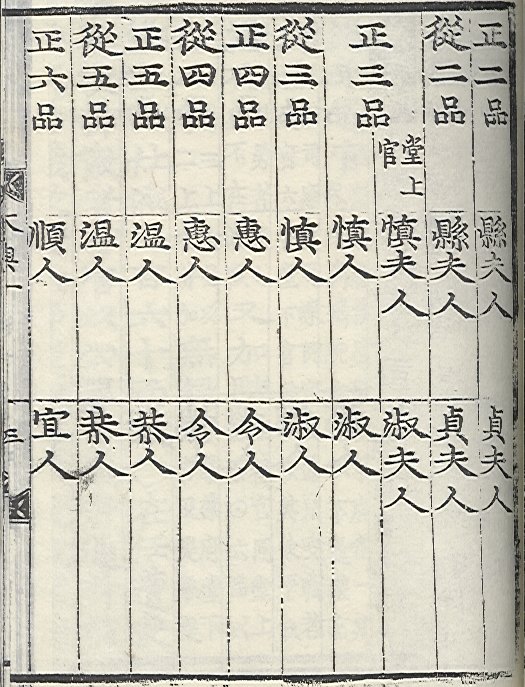 正二品 縣夫人 貞夫人
從二品 縣夫人 貞夫人
正三品 堂上官 慎夫人 淑夫人
慎人 淑人
從三品 慎人 淑人
正四品 惠人 令人
從四品 惠人 令人
正五品 溫人 恭人
從五品 溫人 恭人
正六品 順人 宜人